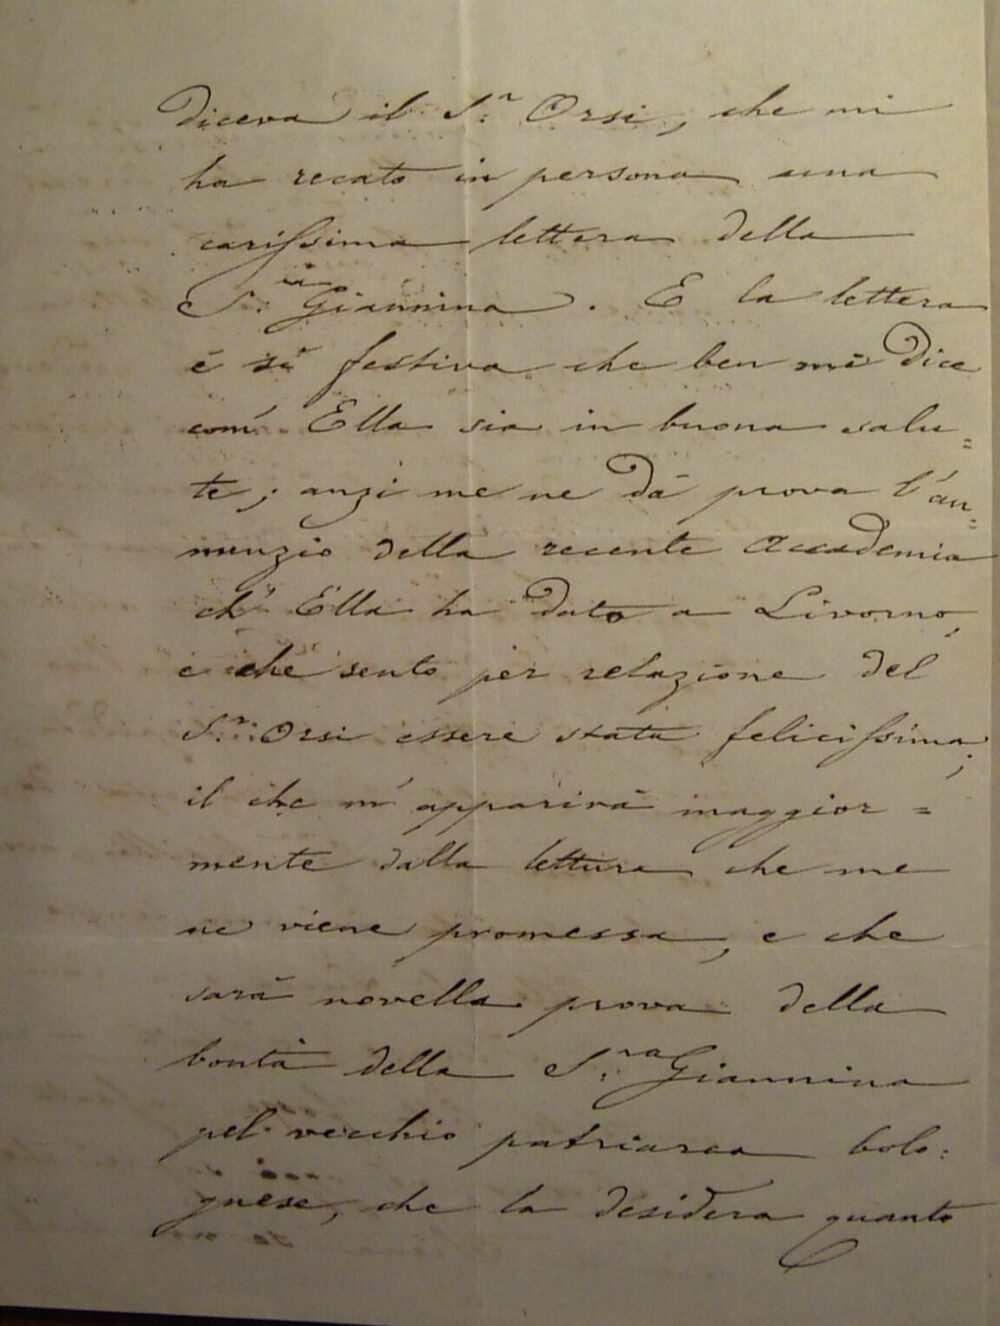 diceva il S.r Orsi, che mi
ha recato in persona una
carissima lettera della
S.ra Giannina. E la lettera
è sì festiva che ben mi dice
com' Ella sia in buona salu=
te; anzi me ne dà prova l'an=
nunzio della recente accademia
ch' Ella ha dato a Livorno,
e che sento per relazione del
S.r Orsi essere stata felicissima;
il che m' apparirà maggior=
mente dalla lettura che me
ne viene promessa, e che
sarà novella prova della
bontà della S.ra Giannina
pel vecchio patriarca bolo=
gnese, che la desidera quanto